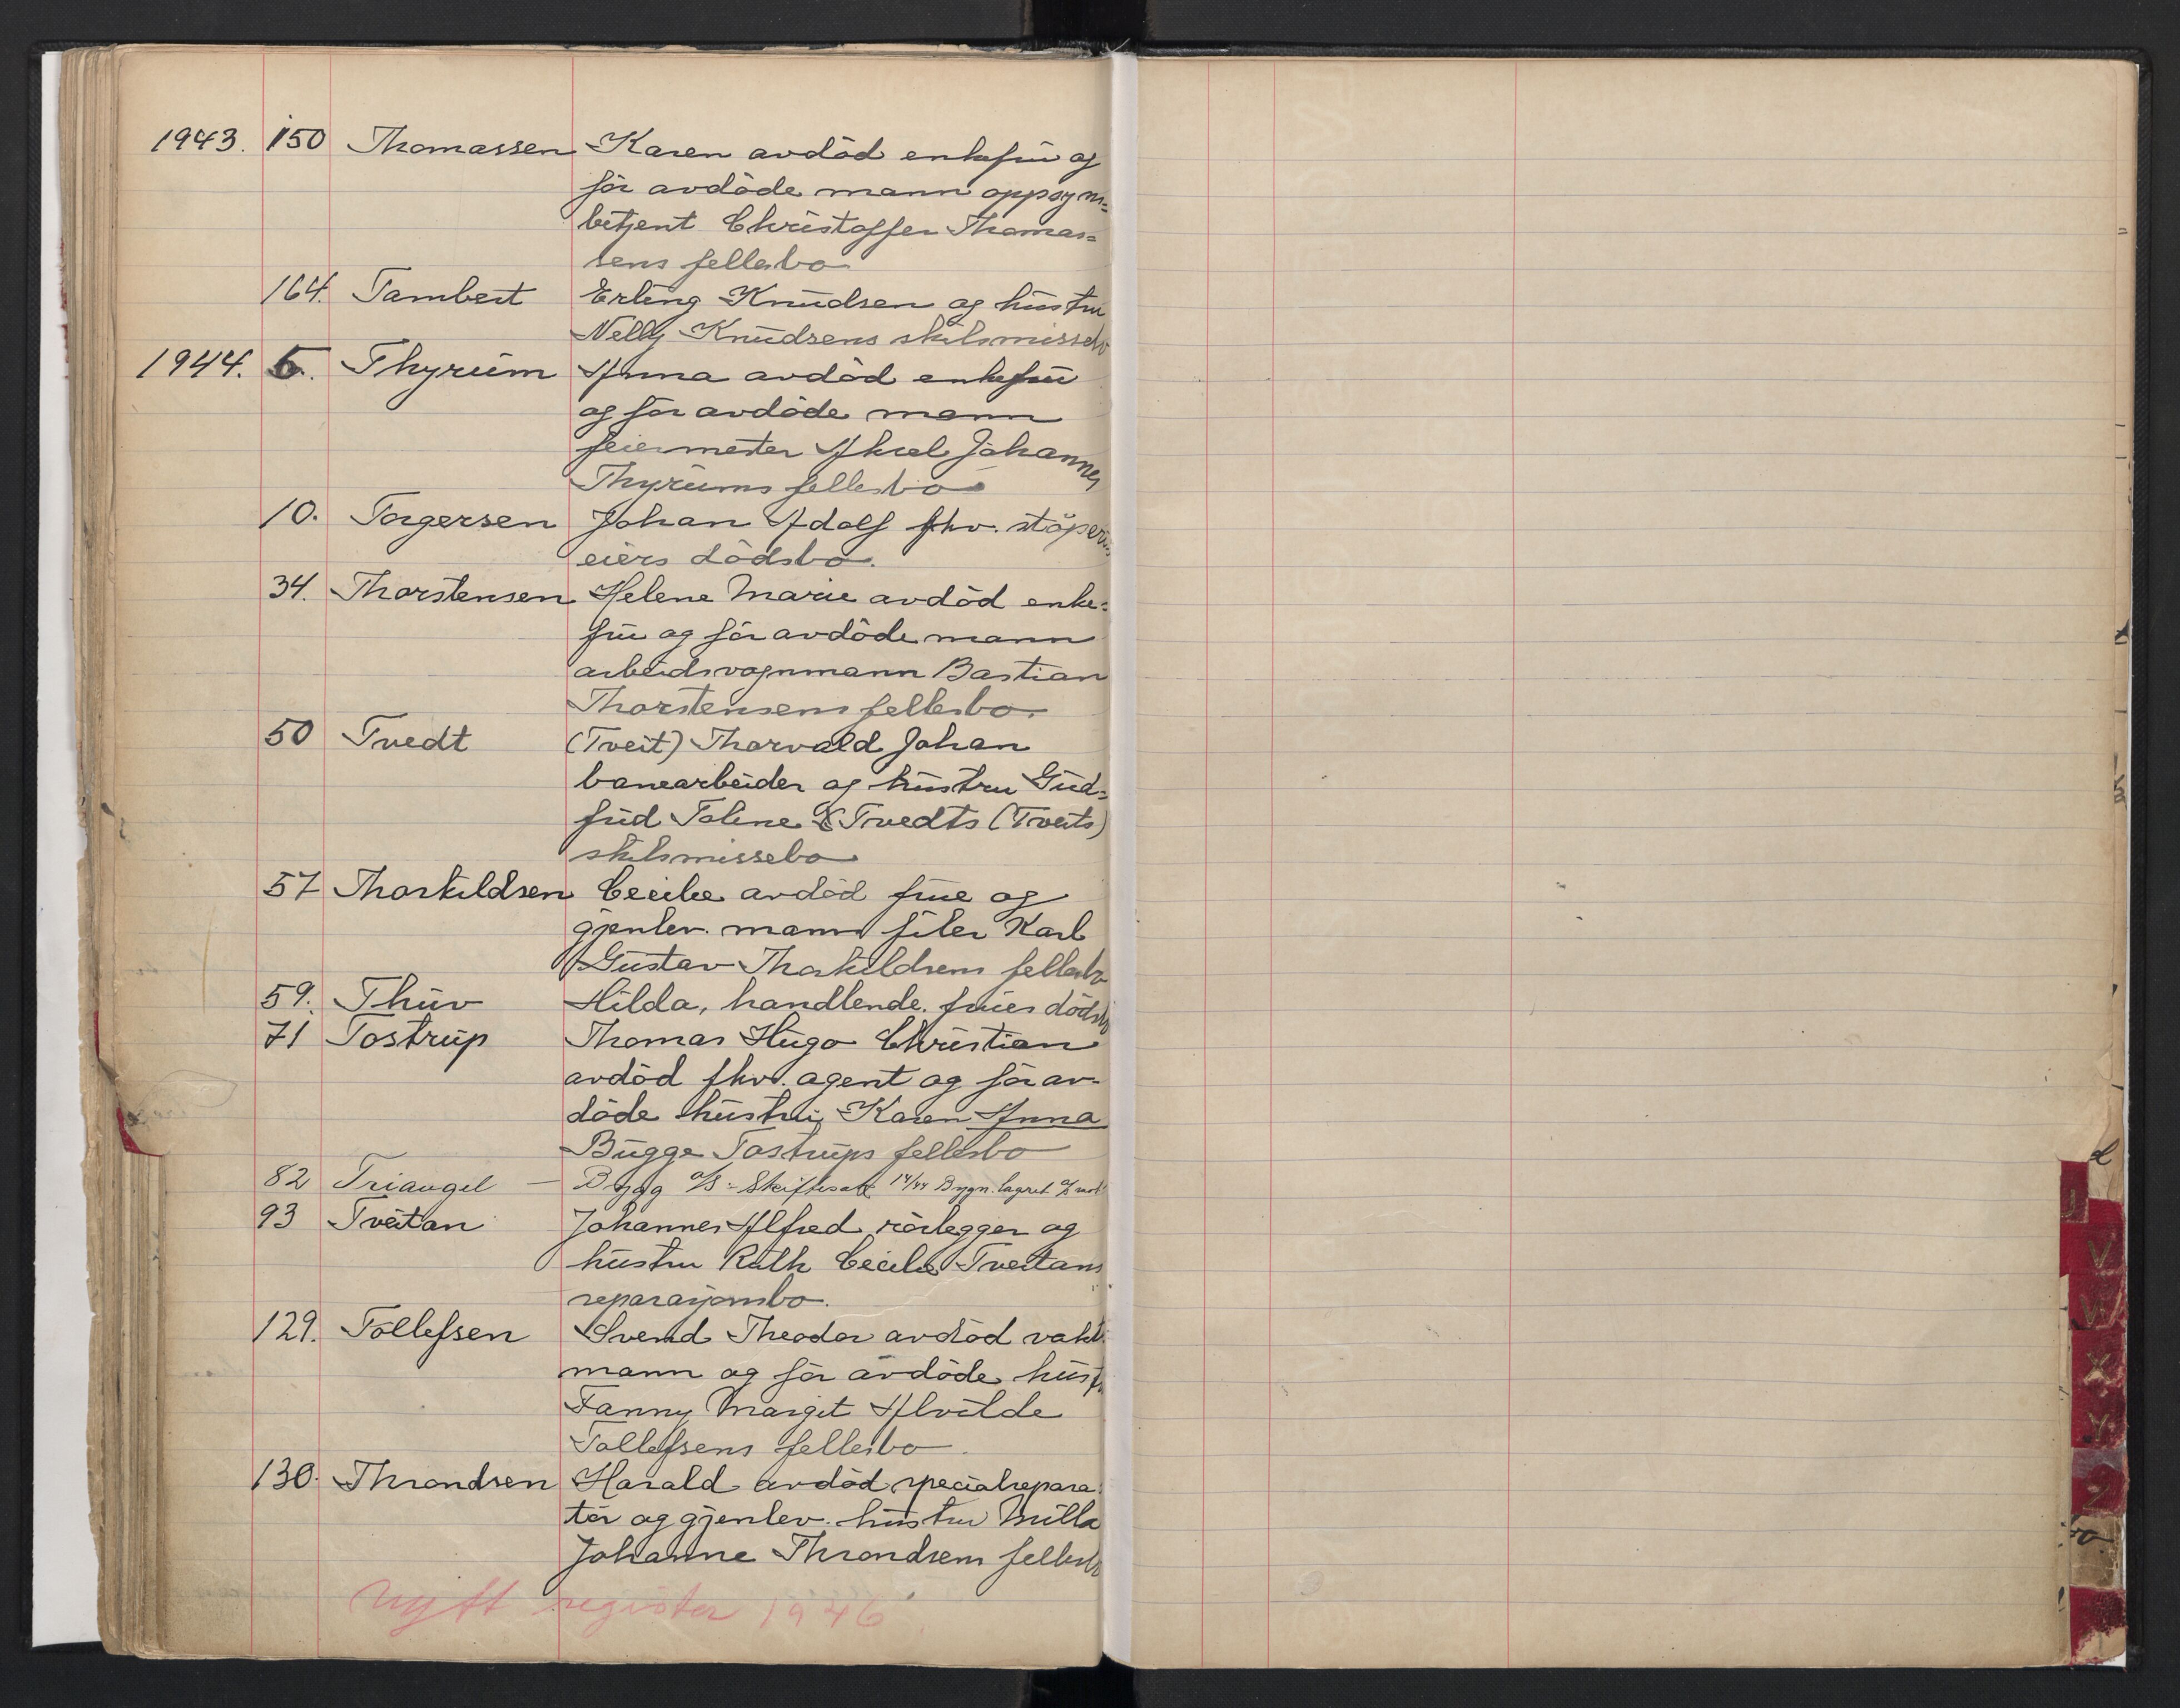 1943. 150 Thomassen Karen avdød enkefru og
før avdøde mann oppsyns=
betjent Christoffer Thomas=
sens fellesbo
164. Tambest Erling Knudsen og hustru
Nelly Knudsens skilsmissebo
1944. 6. Thyrum Anna avdød enkefru
og før avdøde mann
feiermester Aksel Johannes
Thyrums fellesbo
10. Torgersen Johan Adolf fhv. støperi
eiers dødsbo.
34. Thorstensen Helene Marie avdød enke=
fru og før avdøde mann
arbeidsvognmann Bastian
Thorstensens fellesbo.
50 Tvedt (Tveit) Thorvald Johan
banearbeider og hustru Gud=
frid Toline Tvedts (Tveits)
skilsmissebo
57 Thorkildsen Cecilie avdød frue og
gjenlev. mann filer Karl
Gustav Thorkildsens fellesbo
59. Thuv Hilda, handlende. frues dødsbo
71 Tostrup Thomas Hugo Christian
avdød fhv. agent og før av-
døde hustru Karen Anna
Bugge Tostrups fellesbo
82 Triangel — Bygg A/S - Skiftesak 14/44 Bygn. lagret
93 Tveitan Johannes Alfred rørlegger og
hustru Ruth Cecilie Tveitans
separasjonsbo.
129. Tollefsen Svend Theodor avdød vakt
mann og før avdøde hustru
Fanny Margit Alvilde
Tollefsens fellesbo.
130. Throndsen Harald avdød specialrepara=
tør og gjenlev. hustru Milla
Johanne Throndsens fellesbo
Nytt register 1946.
U
V
W
X
Y